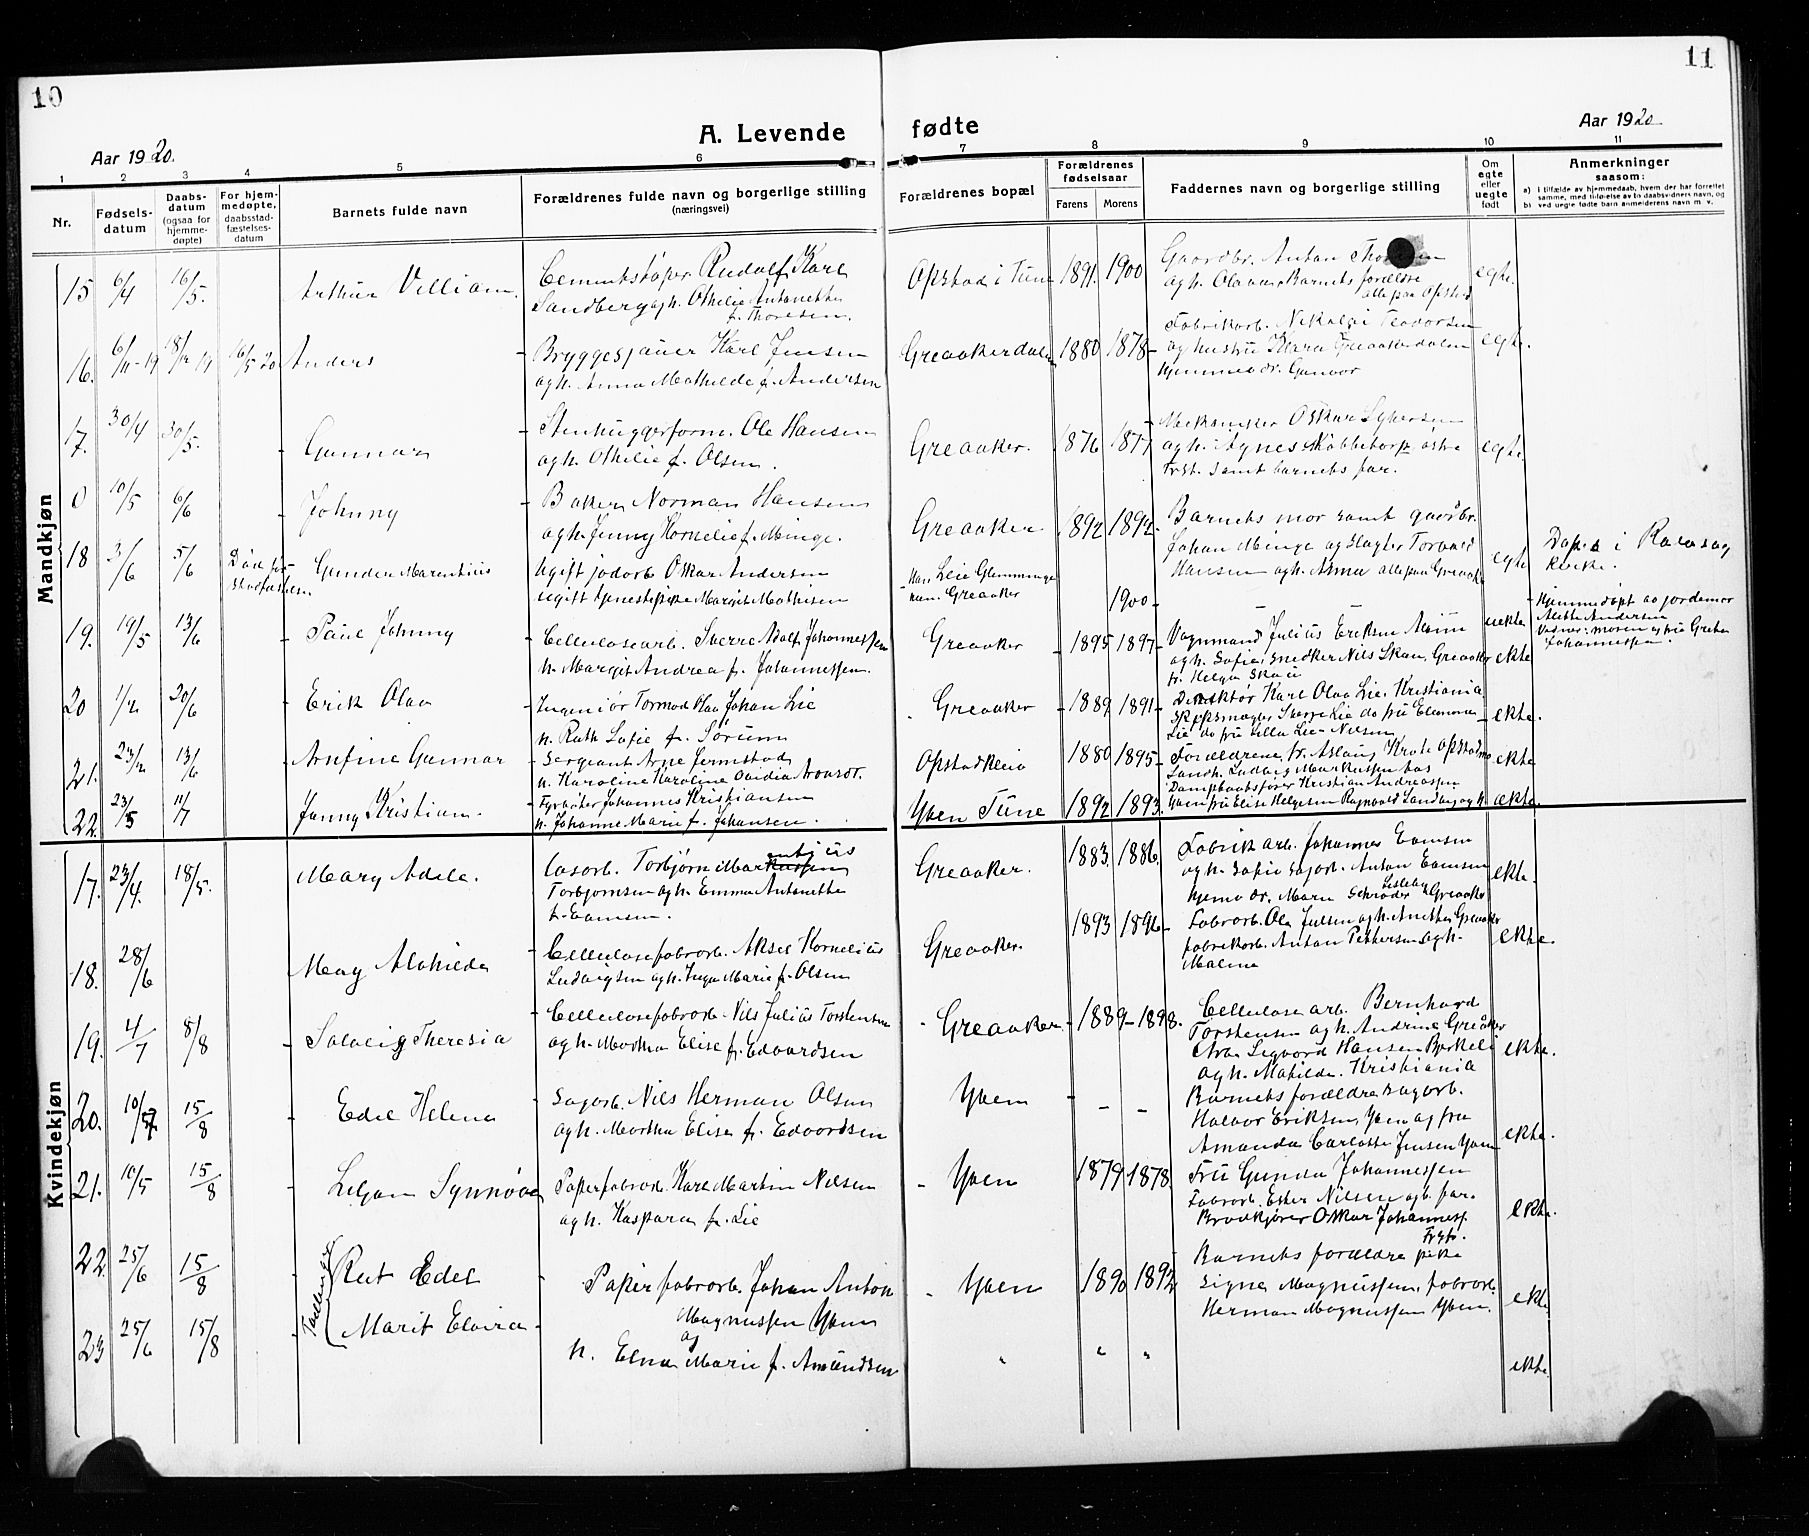 10
11
A. Levende fødte
Aar 1920.
Aar 1920
1 2 3 4 5 6 7 8 9 10 11
Nr.
Fødsels-datum
Daabs-datum (ogsaa for hjemme-døpte)
For hjem-medøpte, daabsstad-fæstelses-datum
Barnets fulde navn
Forældrenes fulde navn og borgerlige stilling (næringsvei)
Forældrenes bopæl
Forældrenes fødselsaar
Farens
Morens
Faddernes navn og borgerlige stilling
Om egte eller uegte født
Anmerkninger saasom:
a) i tilfælde av hjemmedaab, hvem der har forrettet samme, med tilføielse av to daabsvidners navn, og
b) ved uegte fødte barn anmelderens navn m. v.
Mandkjøn
15 6/4 16/5. Arthur Villiam. Cementstøper Rudolf Karl Opstad i Tune 1891. 1900 Gaardbr. Anton egte.
Sandberg og h. Othilie Antonette og h. Barnets forældre
f. Thoresen. alle paa Opstad
16. 6/11-19 18/12 19 16/5 20 Anders Bryggesjauer Karl Jensen Greaakerdalen 1880 1878 Fabrikarb. Teodorsen egte.
og h. Anna Mathilde f. Andersen og hustru Klara Greaakerdalen
Hjemmev. dr. Gunvor
17. 30/4 30/5. Gunnar Stenhuggerform. Ole Hansen Greaaker. 1876 1877 Mekaniker Oskar Syversen egte.
og h. Othilie f. Olsen. og h. Agnes
Frst. samt barnets far.
0 10/5 6/6 Johnny Baker Norman Hansen Greaaker 1892 1892. Barnets mor samt gaardbr. egte
og h. Jenny Kornelie f. Minge. Johan Minge og Torvald
Hansen og h. Anna alle paa Greaaker
18 3/6 5/6 Død før stadfæstelsen Gunder Marentius Ugift jodarb. Oskar Andersen Han Leie Glemminge 1900 - uekte Døpt i
ugift tjenestepike Margit Mathisen hun. Greaaker kirke.
19. 19/5 13/6 Paul Johnny Cellulosearb. Sverre Adolf Johannessen Greaaker 1895 1897 Vognmand Julius Eriksen ekte Hjemmedøpt av jordemor
h. Margit Andrea f. Johannessen. og h. Sofie, snedker Nils Skau, Greaaker Andersen
fr. Helga Skau Johannessen.
20 1/2 20/6 Erik Olav Ingeniør Tormod Olav Johan Lie Greaaker 1889 1891 Direktør Karl Olav Lie. Kristiania ekte.
h. Ruth Sofie f. Sørum Skipsmægler Sverre Lie do fru Eleonora
Lie do fru Ella Lie-Nielsen
21. 23/2 13/6 Arnfinn Gunnar Sergeant Arne Jermstad Opstadkleiv 1880 1895 Forældrene, fr. Aslaug ekte
h. Karoline Karoline Ovidia Landh. Ludvig Markussen
Dampbaatsfører Kristian Andreassen
22. 23/5 11/7 Jonny Kristian. Fyrbøter Johannes Kristiansen Yven Tune 1892 1893. Yven fru Elise Helgesen Ragnvald Sandberg og h. ekte.
h. Johanne Marie f. Johansen.
Kvindekjøn
17. 23/4 18/5. Mary Adele. Torbjørn Marentius Greaaker. 1883. 1886. Fabrikarb. Johannes Eamsen ekte.
Torbjørnsen og h. Emma Antonette og h. Sofie sagarb. Anton Eamsen
f. Eamsen. Hjemv. dr. Marn Schrøder Lisleby Greaaker
18. 28/6 May Alohilde Cellulosefabrarb. Aksel Kornelius Greaaker. 1893 1896 Fabrarb. Ole Julsen og h. Anette, Greaaker ekte.
Ludvigsen og h. Inga Marie f. Olsen fabrikarb. Anton Pettersen og h.
Malene
19. 4/7 8/8 Solveig Theresia Cellulosefabrarb. Nils Julius Torstensen Greaaker 1889 - 1898. Cellulosearb. Bernhard ekte.
og h. Martha Elise f. Edvardsen Torstensen og h. Andrine Greåker
Arb. Sigvard Hansen Bjerkeli
og h. Matilde. Kristiania
20. 10/7 15/8 Edel Helena Sagarb. Nils Herman Olsen Yven - - Barnets forældre sagarb. ekte.
og h. Martha Elise f. Edvardsen Halvor Eriksen, Yven og fru
Amanda Carlotte Jensen Yven
21. 10/5 15/8 Liljan Synnøve Papirfabrarb. Karl Martin Nilsen Yven 1879 1878. Fru Gunda Johannessen ekte.
og h. Kaspara f. Lie Fabrarb. Ester Nilsen og b. far.
Brødkjører Oskar Johanness.
Frst.
22. 25/6 15/8 Tvillinger Rut Edel Papirfabrarb. Johan Anton Yven 1890 1892 Barnets forældre pike ekte
Magnussen Yven Signe Magnussen, fabrarb.
Herman Magnussen Yven.
23 25/6 15/8 Marit Elvira og " " " ekte.
h. Elna Marie f. Amundsen